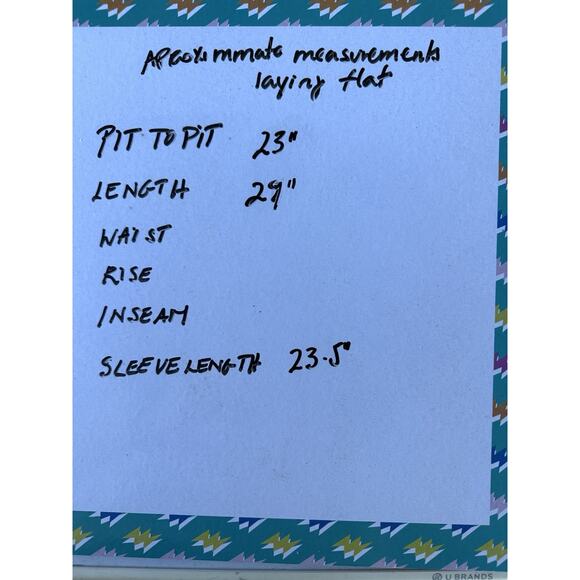 Aproximmate measurements
laying flat
PIT TO PIT 23"
LENGTH 29"
WAIST
RISE
INSEAM
SLEEVE LENGTH 23.5"
U BRANDS